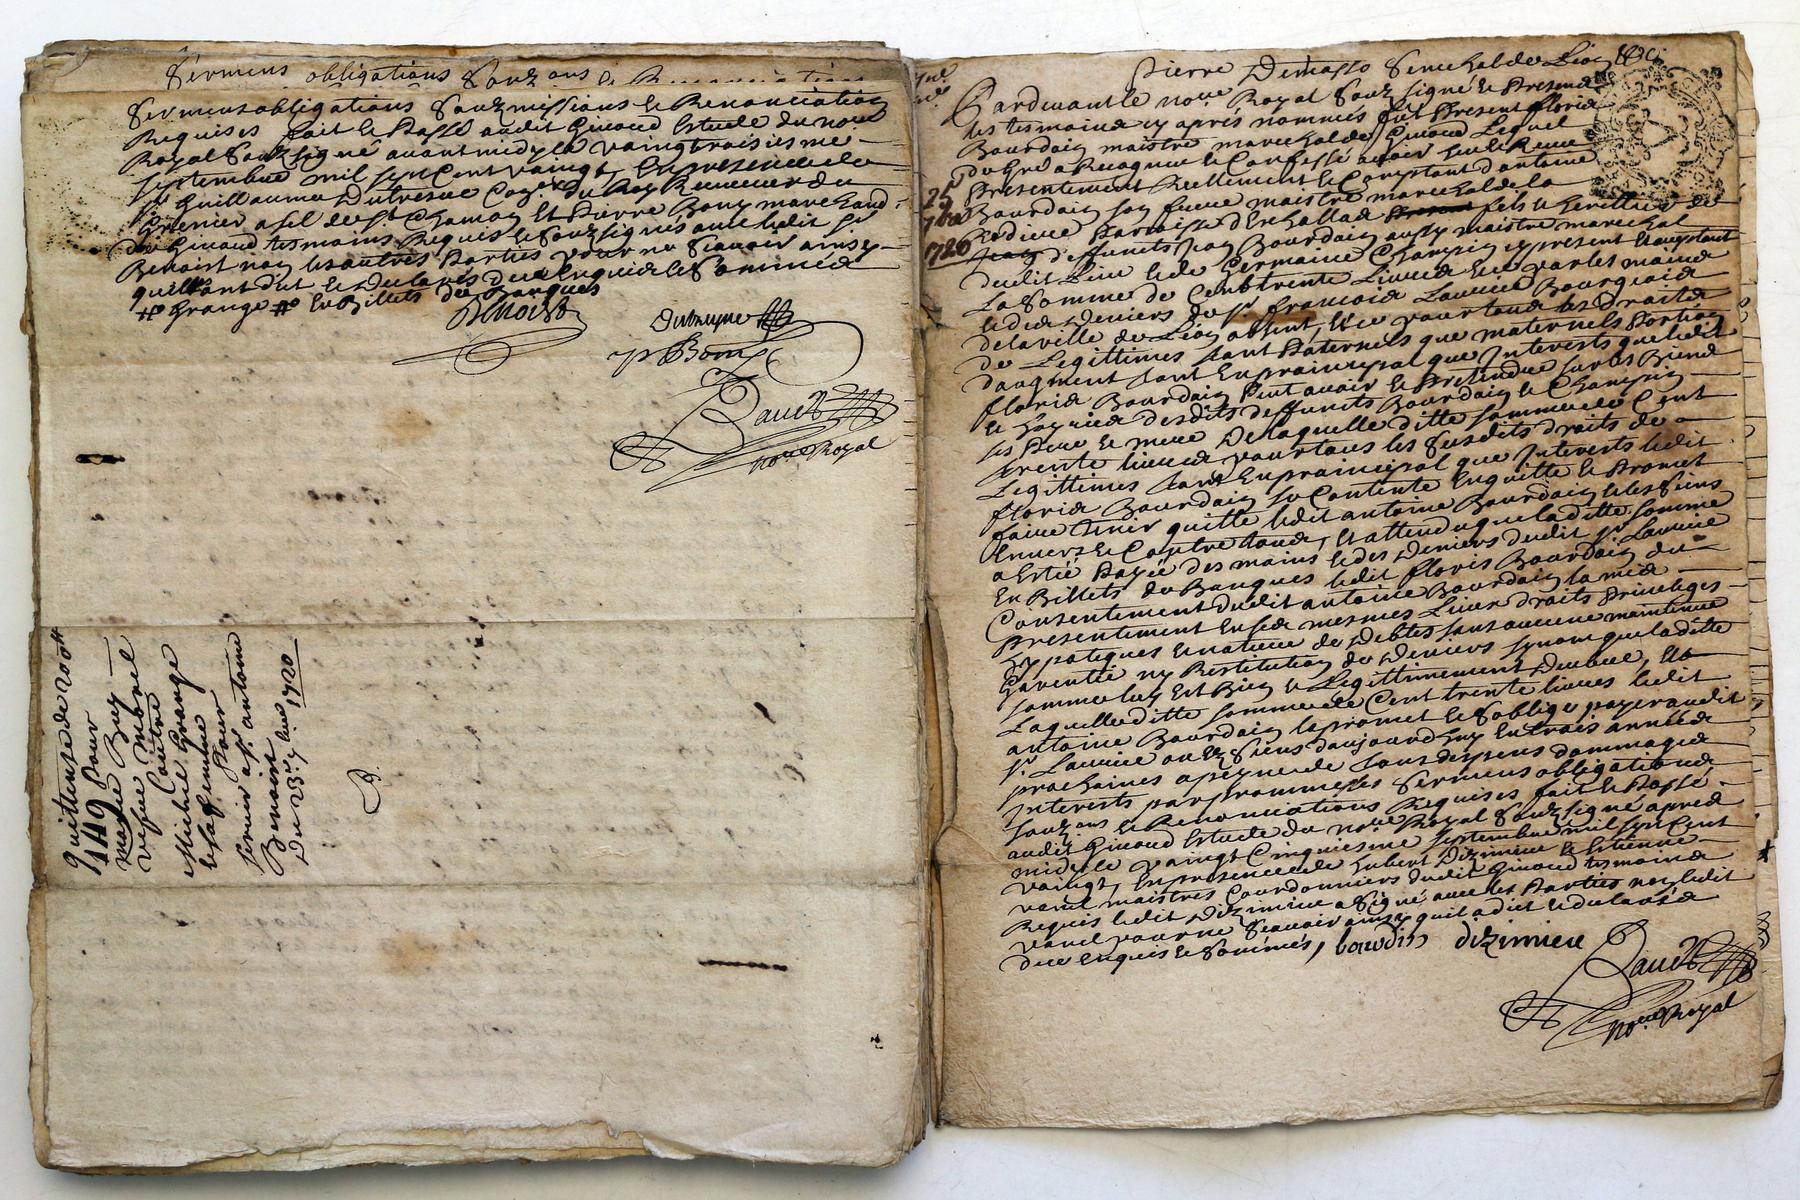 Sermens obligations Souz ons &
Sermens obligations Souzmissions & Renonciation
Requises fait & Passé audit Giuaud Estude du no.re
Royal Souzsigné auant midy le vaingtroisiesme
Septembre mil sept Cent vaingt, En presence de
S.r Guillaume Dutresne Coner du Roy Receueur du
Grenier a sel de S.t Chamon Et Pierre Bony marchand
du Giuaud tesmoins Requis & Souzsignés auec ledit S.r
Benoist non les autres Parties pour ne Scauoir ainsy
quils ont dit & declarés deue Enquis & Sommés
# Grange # En Billets de Banques
Benoist
P Bony
no.re Royal
quittense de 200#
149 Pour
Marie Buy
vefue Morel
Contre
Michel Grange
& sa femme
Pour
S.r antoine
Benoist
Du 23.e 7.bre 1720
Pierre Demasso Senechal de Lion
Pardeuant le no.re Royal Souz signé & Presens
les tesmoins cy aprés nommés fut Present Floris
Bourdain maistre marechal de Giuaud Lequel
de Gré a Recognu & Confessé auoir heu & Receu
25
7bre
1720
Presentement Reellement & Comptant d'antoine
Bourdain son frere maistre marechal de la
fils & heretier de
Jean deffunts Jean Bourdain aussy maistre marechal
dudit Lieu & de Germaine Champin cy present & acceptant
La Somme de Cent trente Liures & ce par les mains
& des Deniers du S.r francois Laurice Bourgeois
de la ville de Lion absent, & ce pour tous les Droits
de Legittimes tant Paternels que maternels Portion
daugment tant En prainsipal que Interests que ledit
floris Bourdain Peut auoir & Pretendre sur les Biens
& hoyries desdits deffunits Bourdain & Champin
ses Pere & mere De laquelle ditte somme de Cent
trente liures pour tous les Susdits droits de
Legittimes tant En prainsipal que Interests ledit
floris Bourdain se Contente Enquitte & Promet
faire tenir quitte ledit antoine Bourdain & les Siens
Enuers & Contre tous, Et attendu que la ditte somme
a Estté Payée des mains & des Deniers dudit S.r Laurice
En Billets de Banques ledit floris Bourdain du
Consentement dudit antoine Bourdain la mis
presentement En ses mesmes Lieux droits Priuileges
hypoteques & nature de Debtes sans aucune maintenue
Garentie ny Restitution de Deniers synom que la ditte
somme luy Est Bien & Legittimement Deubue, &
Laquelle ditte somme de Cent trente liures ledit
antoine Bourdain la promet & Soblige payer audit
S.r Laurice ou és Siens d'aujourdhuy En trois années
prochaines apeyne de tous despens dommages
Interests par Prommesses Sermens obligations
Souz.ons & Renonciations Requises fait & Passé
audit Giuaud Estude du no.re Royal Souz signé apres
midy le vaingt Cinquiesme Septembre mil sept Cent
vaingt, En presence de hubert Diziniere & Estienne
varel maistres Courdonniers dudit Giuaud tesmoins
Requis ledit Diziniere a Signé auec les Parties non ledit
varel pour ne Scauoir ainsy quil a dict & declaré
deue Enquis & Sommés, bourdin diziniere
no.re Royal